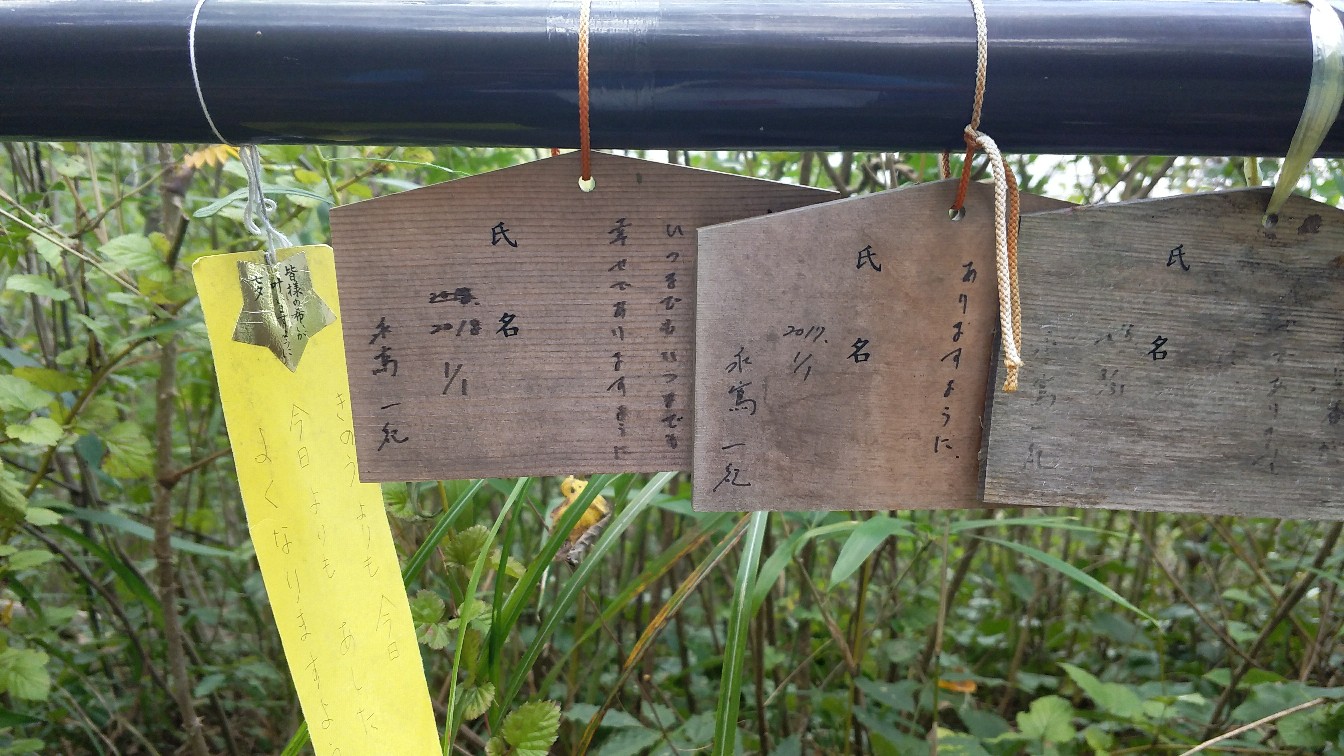 皆様の希いが
叶いますように
七夕
きのうよりも 今日
今日よりも あした
よくなりますよう
いつまでもいつまでも
幸せでありますように
氏 名
2018
1/1
永嶌 一紀
ありますように.
氏 名
2017.
1/1
永嶌 一紀
氏 名